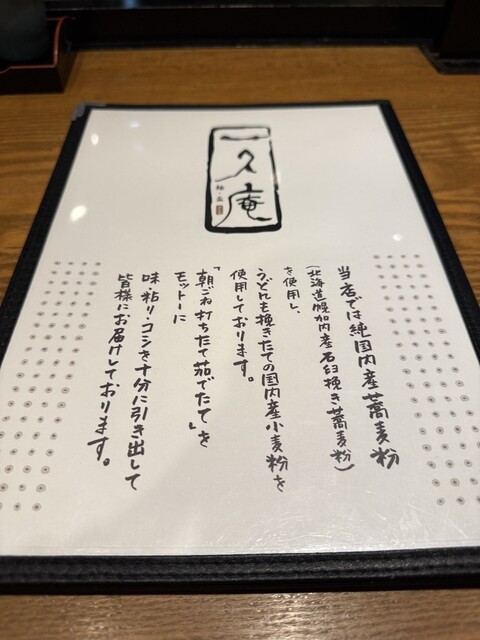 一久庵
当店では純国内産蕎麦粉
(北海道幌加内産石臼挽き蕎麦粉)
を使用し、
うどんも挽きたての国内産小麦粉を
使用しております。
「朝ごね打ちたて茹でたて」を
モットーに
味・粘り・コシを十分に引き出して
皆様にお届けしております。